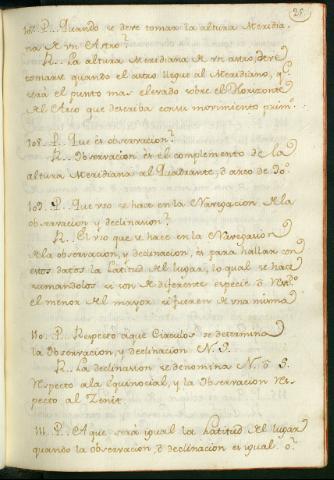 25
107. P.. Quando se deve tomar la altura Meridia
na de un Astro?
R.. La altura Meridiana de un astro, deve
tomarse quando el astro llegue al Meridiano, q.e
será el punto mas elevado sobre el Horizonte
del Arco que describa con su movimiento
108. P.. Que és observacion?
R.. Observacion és el complemento de la
altura Meridiana al Quadrante, ó arco de 90.
109. P.. Que uso se hace en la Navegacion de la
observacion y declinacion?
R.. El uso que se hace en la Navegacion
de la observacion, y declinacion, és para hallar con
estos datos la Latitud del lugar, lo qual se hace
sumandolos si son de diferente especie ó
el menor del mayor si fueren de una misma
110. P.. Respecto á que Circulos se determina
la Observacion, y declinacion N. S.
R.. La declinacion se denomina N. ó S.
respecto a la Equinocial, y la Observacion res
pecto al Zenit.
111. P.. A que será igual la Latitud del lugar
quando la observacion, ó declinacion és igual 0.°